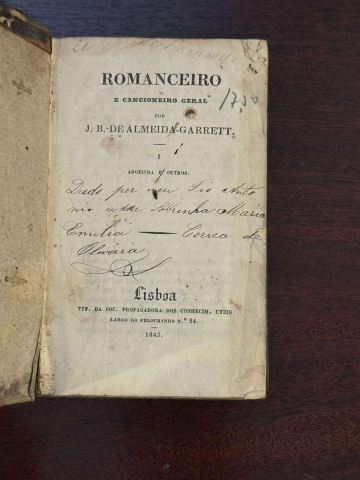 ROMANCEIRO
E CANCIONEIRO GERAL
POR
J. B. DE ALMEIDA-GARRETT.
I
ADOZINDA E OUTROS.
Dado por meu Tio Anto
nio Sobrinha Maria
Emilia — Correa de
Oliveira
Lisboa
TYP. DA SOC. PROPAGADORA DOS CONHECIM. UTEIS
LARGO DO PELOURINHO N.º 24.
1843.